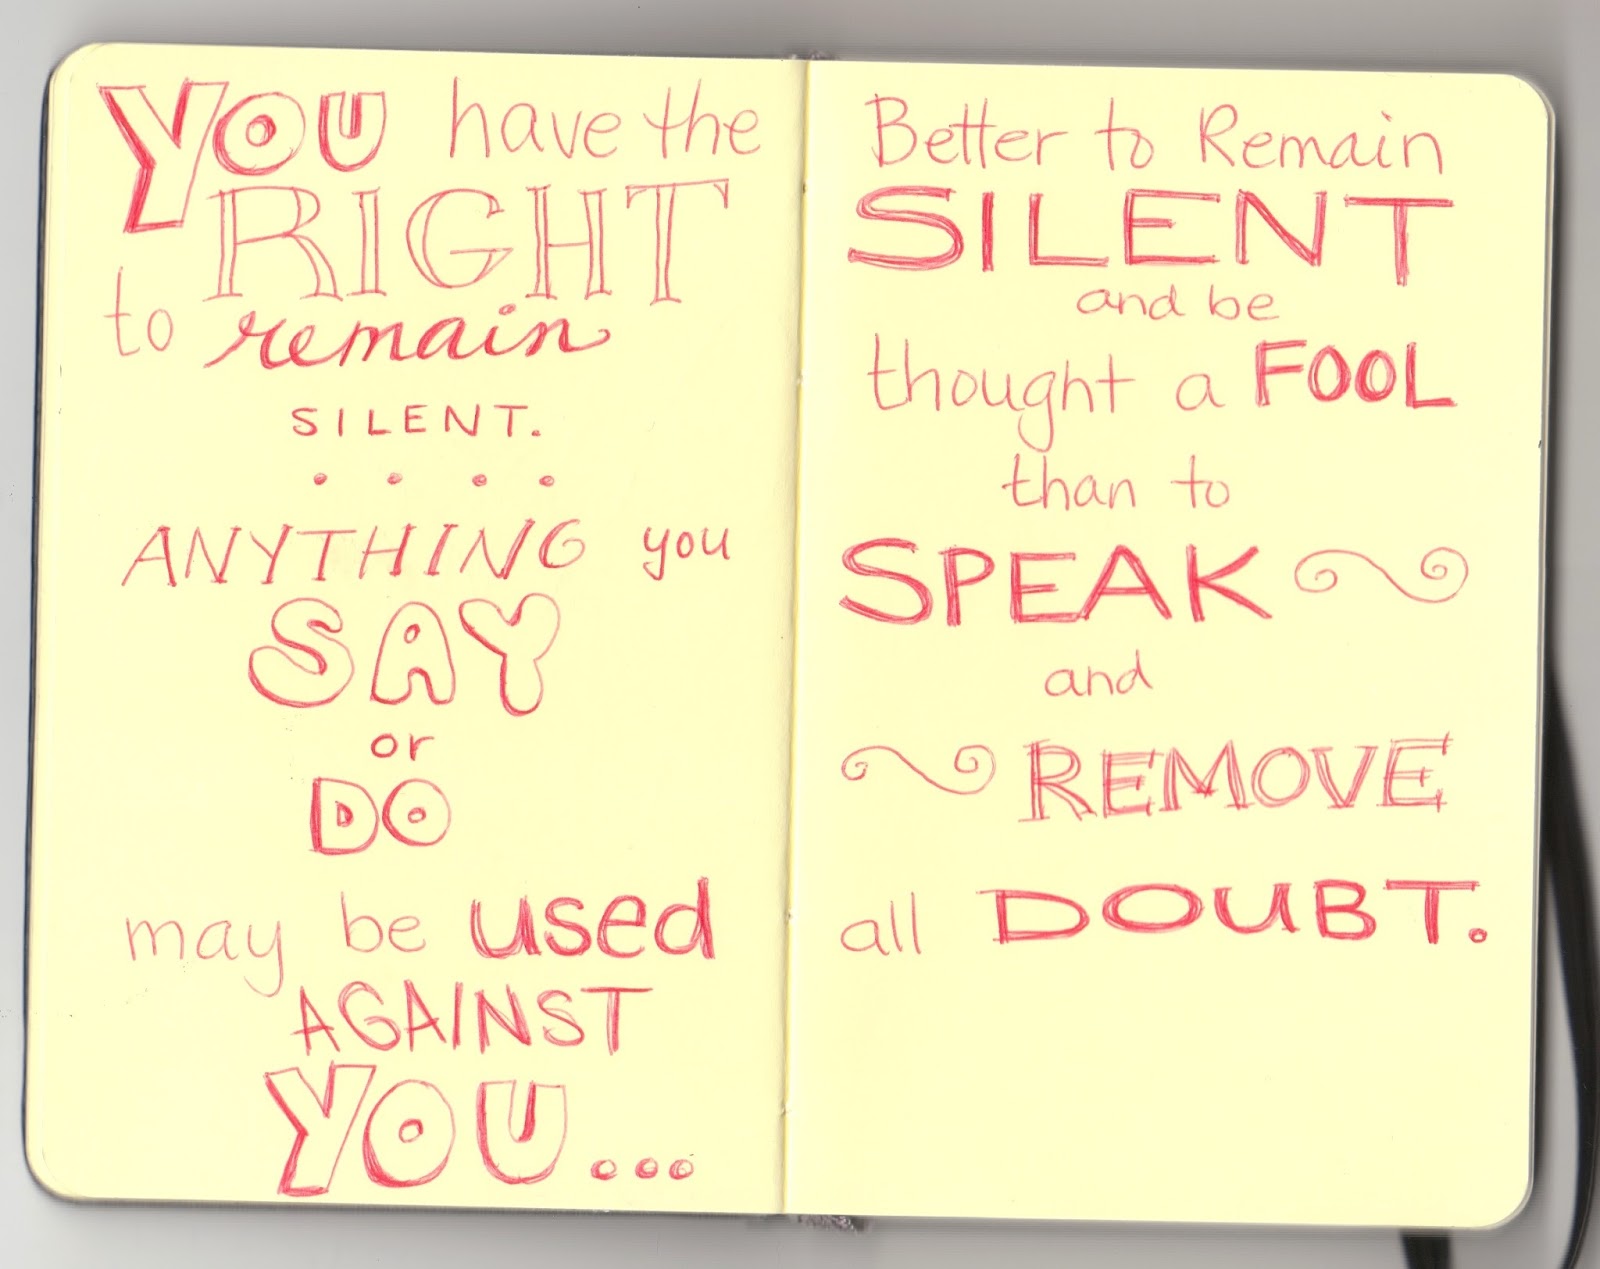 YOU have the
RIGHT
to remain
SILENT.
. . . .
ANYTHING you
SAY
or
DO
may be used
AGAINST
YOU...
Better to Remain
SILENT
and be
thought a FOOL
than to
SPEAK
and
REMOVE
all DOUBT.